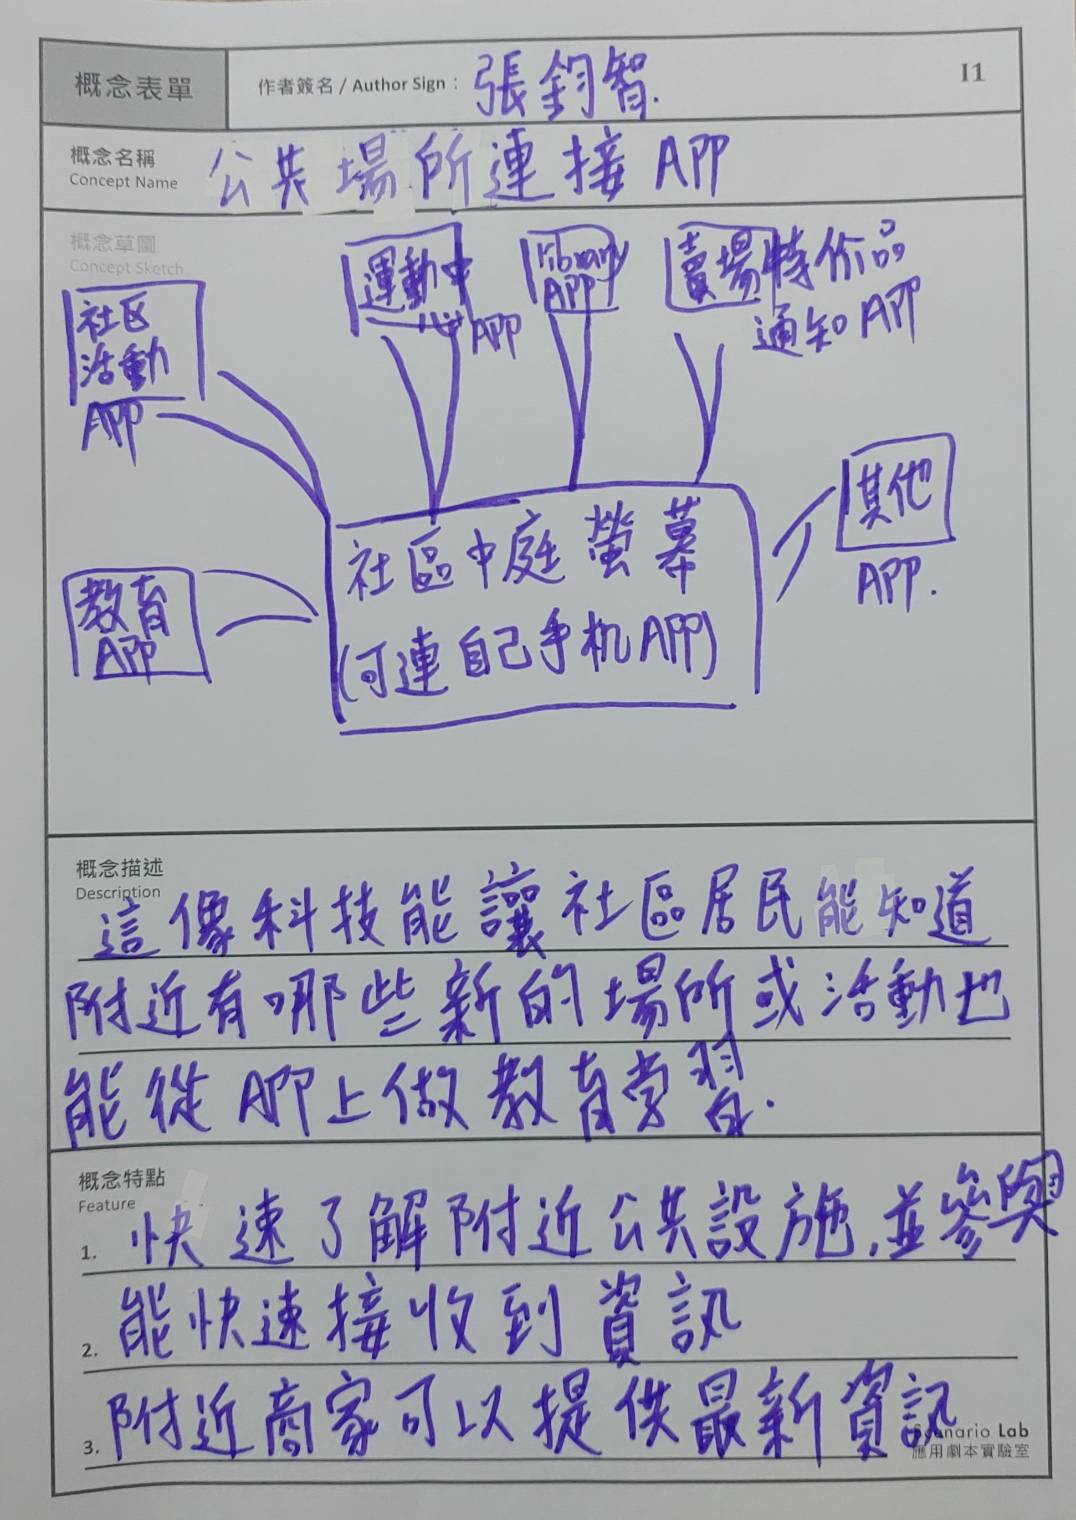 概念表單
作者簽名 / Author Sign：張鈞智.
I1
概念名稱
Concept Name
公共場所連接APP
概念草圖
Concept Sketch
社区
活動
APP
運動中
心APP
library
APP
賣場特价品
通知APP
教育
APP
社區中庭螢幕
(可連自己手机APP)
其他
APP.
概念描述
Description
這像科技能讓社區居民能知道
附近有哪些新的場所或活動也
能從APP上做教育学習.
概念特點
Feature
1. 快速了解附近公共設施,並參與
2. 能快速接收到資訊
3. 附近商家可以提供最新資訊
Scenario Lab
應用劇本實驗室